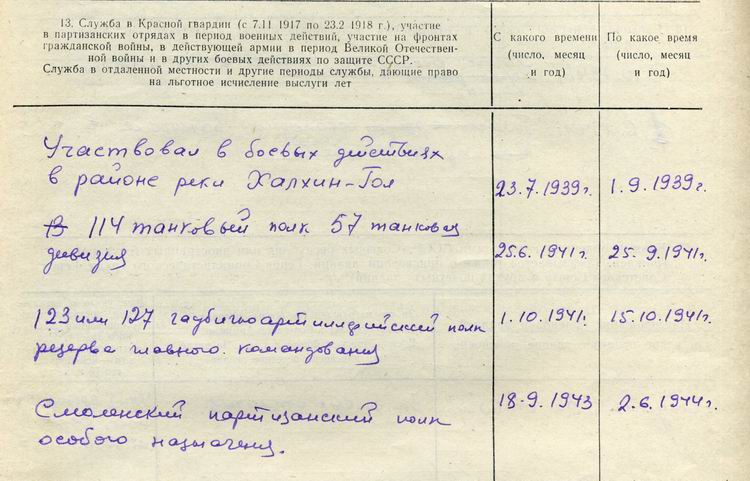 13. Служба в Красной гвардии (с 7.11 1917 по 23.2 1918 г.), участие
в партизанских отрядах в период военных действий, участие на фронтах
гражданской войны, в действующей армии в период Великой Отечествен-
ной войны и в других боевых действиях по защите СССР.
Служба в отдаленной местности и другие периоды службы, дающие право
на льготное исчисление выслуги лет
С какого времени
(число, месяц
и год)
По какое время
(число, месяц
и год)
Участвовал в боевых действиях
в районе реки Халхин-Гол
23.7.1939г.
1.9.1939г.
В 114 танковый полк 57 танковая
дивизия
25.6.1941г.
25.9.1941г.
123 или 127 гаубичноартиллерийский полк
резерва главного командования
1.10.1941г.
15.10.1941г.
Смоленский партизанский полк
особого назначения.
18.9.1943
2.6.1944г.